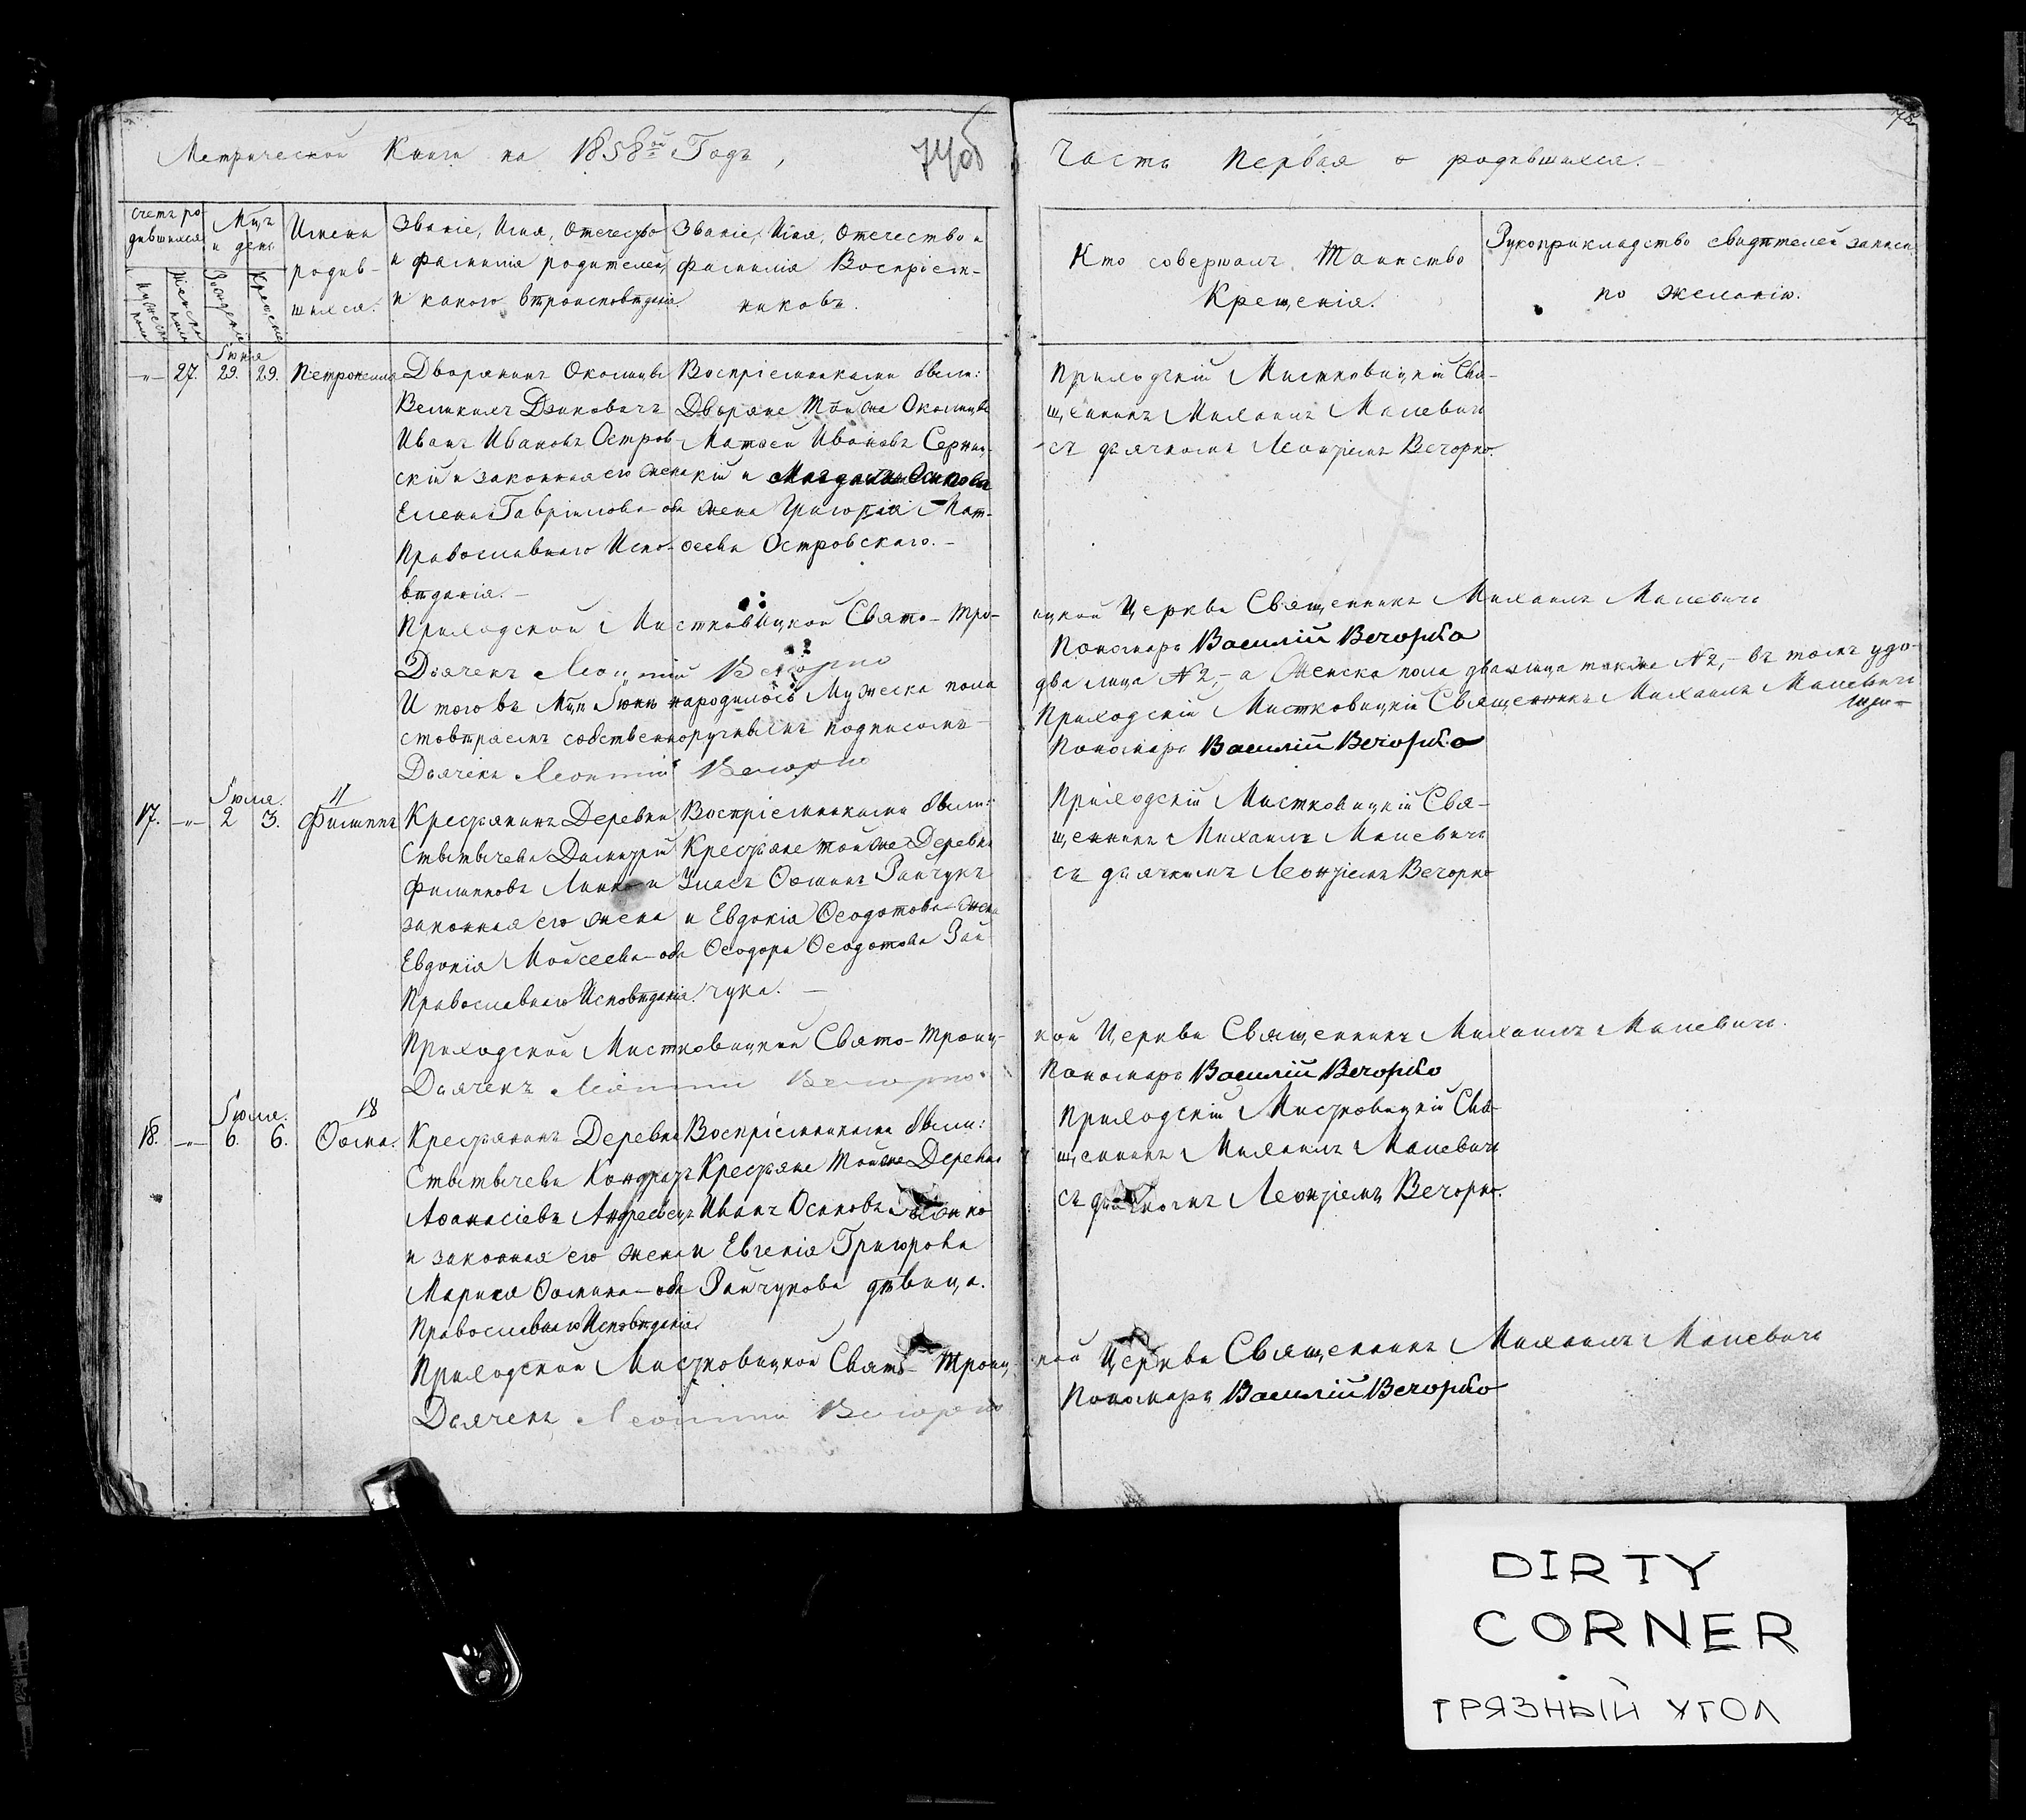 Метрической Книги на 1858й Годъ,
74об
Часть Первая о родившихся.
75
Счетъ ро-
дившихся
Мужеска
пола
Женска
пола
Мцъ
и день
Рожденія
Крещенія
Имена
родив-
шихся.
Званіе, Имя, Отечество
и Фамилія родителей,
и какого вѣроисповѣданія
Званіе, Имя, Отечество и
Фамилія Воспріем-
никовъ.
Кто совершалъ Таинство
Крещенія.
Рукоприкладство свидѣтелей записи
по желанію.
Іюня
-„- 27. 29. 29. Петронелла
Дворянинъ Околицы
Великихъ Дзиковичъ
Иванъ Ивановъ Остров-
скій и законная его жена
Елена Гавріилова оба
Православнаго Испо-
вѣданія.
Воспріемниками были:
Дворяне той же Околицы
Матѳей Ивановъ Серниц-
кій и Магдалина Осипова
жена Григорія Мат-
ѳеева Островскаго.
Приходскій Мистковицкій Свя-
щенникъ Михаилъ Малевичъ
съ дьячкомъ Леонтіемъ Вечорко
Приходской Мистковицкой Свято-Тро-
ицкой Церкви Священникъ Михаилъ Малевичъ
Дьячекъ Леонтій Вечорко
Пономарь Василій Вечорко
И того въ Мцѣ Іюнѣ народилось Мужеска пола
два лица №2,- а Женска пола два лица также №2,- въ томъ удо-
стовѣряемъ собственноручнымъ подписомъ
Приходскій Мистковицкій Священникъ Михаилъ Малевичъ
Дьячекъ Леонтій Вечорко
Пономарь Василій Вечорко
Іюля.
17. -„- 2 3. Филиппъ
Крестьянинъ Деревни
Стытычева Димитрій
Филипповъ и
законная его жена
Евдокія Моисеева оба
Православнаго Исповѣданія.
Воспріемниками были:
Крестьяне той же Деревни
Ѳоминъ Райчукъ
и Евдокія Ѳеодотова жена
Ѳеодора Ѳеодотова Рай
чука.
Приходскій Мистковицкій Свя-
щенникъ Михаилъ Малевичъ
съ дьячкомъ Леонтіемъ Вечорко
Приходской Мистковицкой Свято-Троиц-
кой Церкви Священникъ Михаилъ Малевичъ.
Дьячекъ Леонтій Вечорко
Пономарь Василій Вечорко
Іюля. 18
18. -„- 6. 6. Ѳома.
Крестьянинъ Деревни
Стытычева Кондратъ
Аѳанасіевъ Андреевецъ
и законная его жена
Марія Ѳомина оба
Православнаго Исповѣданія.
Воспріемниками были:
Крестьяне той же Деревни
Иванъ Осиповъ
и Евгенія Григорова
Райчукова дѣвица.
Приходскій Мистковицкій Свя-
щенникъ Михаилъ Малевичъ
съ дьячкомъ Леонтіемъ Вечорко.
Приходской Мистковицкой Свято Троиц-
кой Церкви Священникъ Михаилъ Малевичъ
Дьячекъ Леонтій Вечорко
Пономарь Василій Вечорко
DIRTY
CORNER
ГРЯЗНЫЙ УГОЛ